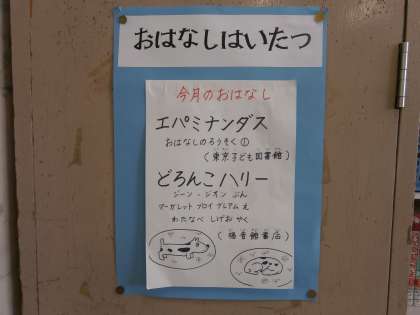 おはなしはいたつ
今月のおはなし
エパミナンダス
おはなしのろうそく①
(東京子ども図書館)
どろんこハリー
ジーン・ジオン ぶん
マーガレット ブロイ グレアム え
わたなべ しげお やく
(福音館書店)